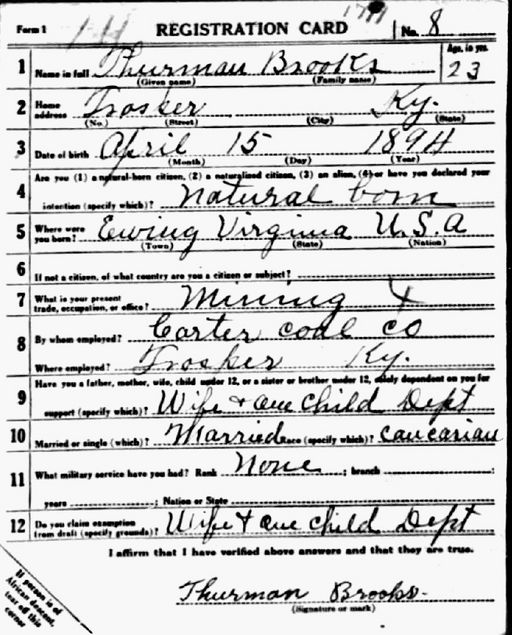 Form 1 REGISTRATION CARD No. 8
1 Name in full Thurman Brooks Age, in yrs. 23
(Given name) (Family name)
2 Home address Trosker Ky.
(No.) (Street) (City) (State)
3 Date of birth April 15 1894
(Month) (Day) (Year)
4 Are you (1) a natural-born citizen, (2) a naturalized citizen, (3) an alien, (4) or have you declared your
intention (specify which)? Natural born
5 Where were you born? Ewing Virginia U.S.A
(Town) (State) (Nation)
6 If not a citizen, of what country are you a citizen or subject?
7 What is your present trade, occupation, or office? Mining X
8 By whom employed? Carter coal co
Where employed? Trosker Ky.
9 Have you a father, mother, wife, child under 12, or a sister or brother under 12, solely dependent on you for
support (specify which)? Wife + one child Dept
10 Married or single (which)? Married Race (specify which)? Caucasian
11 What military service have you had? Rank None ; branch ;
years ; Nation or State
12 Do you claim exemption from draft (specify grounds)? Wife + one child Dept
I affirm that I have verified above answers and that they are true.
Thurman Brooks.
(Signature or mark)
If person is of
African descent,
tear off this
corner